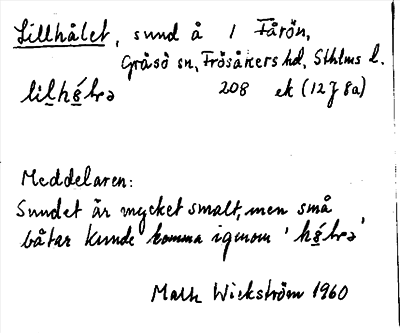 Lillhålet, sund å 1 Fårön,
Gräsö sn, Frösåkers hd, Sthlms l.
208 ek (12J 8a)
Meddelaren:
Sundet är mycket smalt, men små
båtar kunde komma igenom
Math Wickström 1960